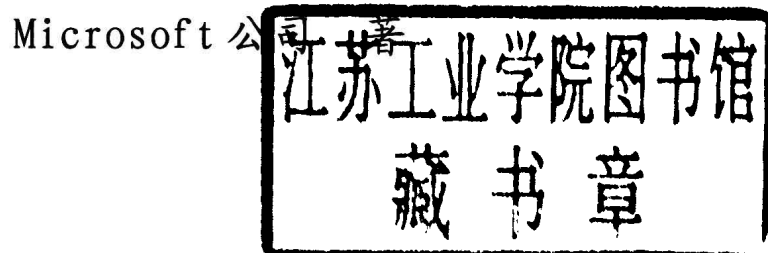 Microsoft 公司 著
江苏工业学院图书馆
藏书章